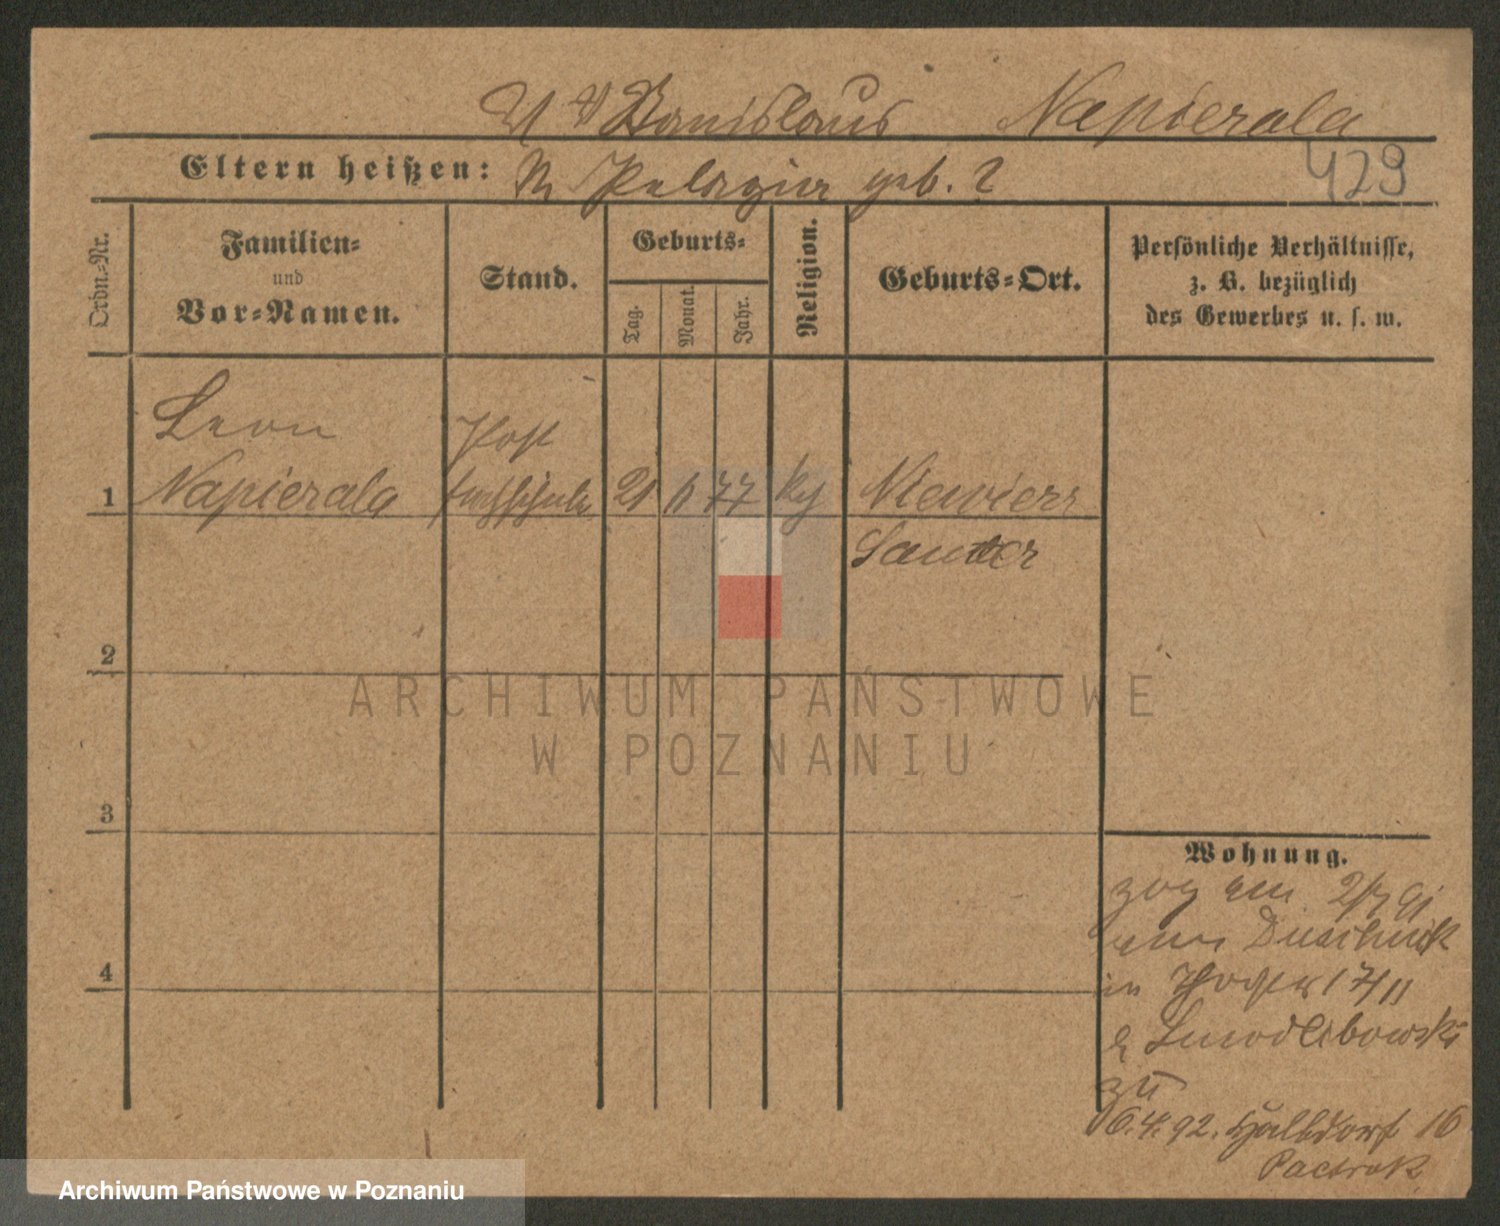 V Stanislaus Napierala
Eltern heißen: M Pelagia geb. ?
429
Ordn.-Nr.
Familien-
und
Vor-Namen.
Stand.
Geburts-
Tag.
Monat.
Jahr.
Religion.
Geburts-Ort.
Persönliche Verhältnisse,
z. B. bezüglich
des Gewerbes u. s. w.
Leon
Post
1 Napierala 21 77 Samter
2
3
4
Wohnung.
zog am 2/7 91
in 17/11
Smodlibowski
zu
6.4.92. Halbdorf 16
ARCHIWUM PAŃSTWOWE
W POZNANIU
Archiwum Państwowe w Poznaniu